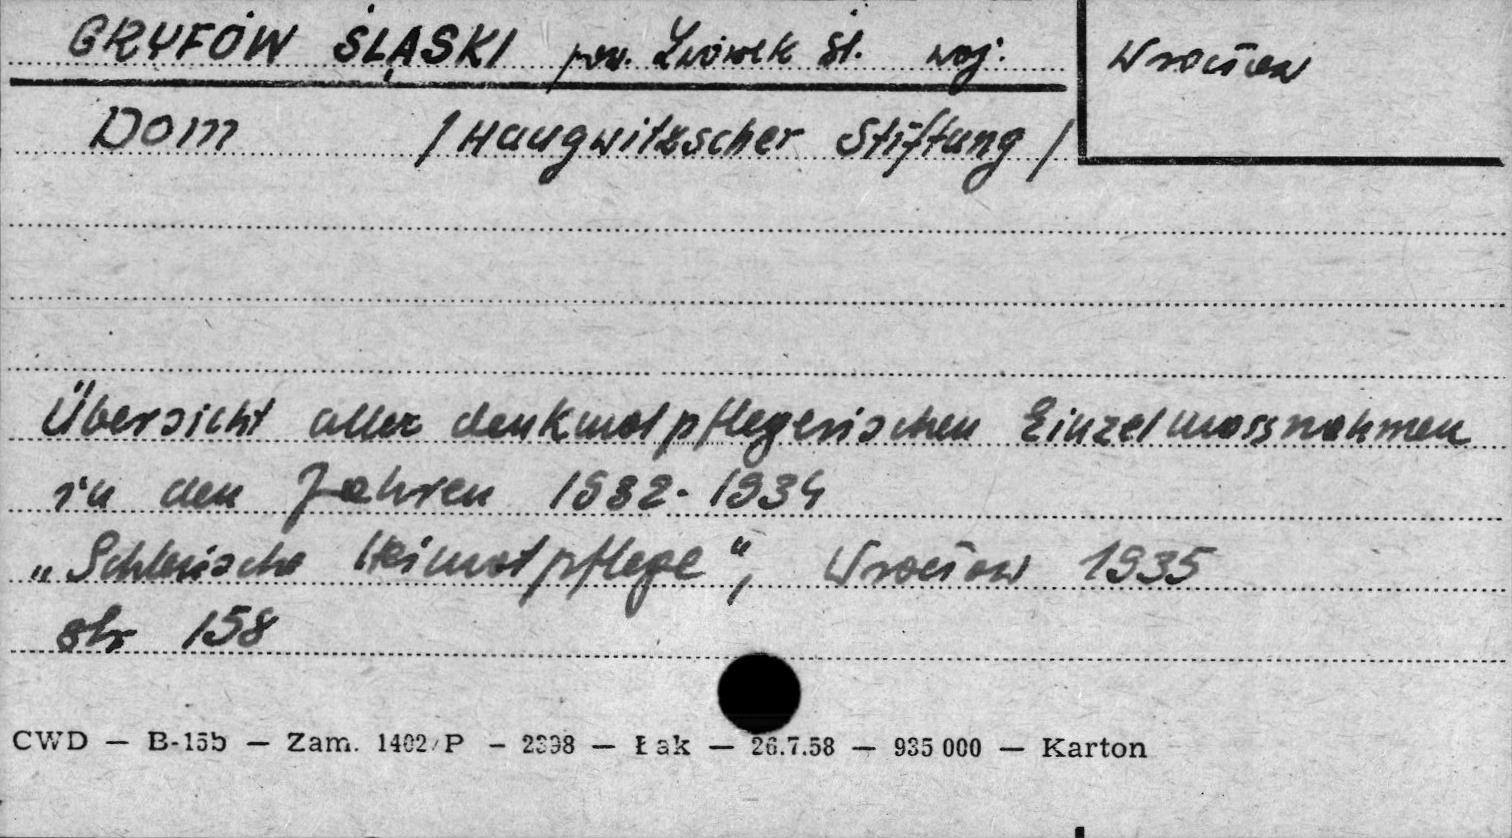 GRYFÓW ŚLĄSKI pow. Lwówek Śl. woj. Wrocław
Dom /Haugwitzscher Stiftung/
Übersicht aller denkmalpflegerischen Einzelmassnahmen
in den Jahren 1932-1934
„Schlesische Heimatpflege", Wrocław 1935
str 158
CWD — B-15b — Zam. 1402/P — 2398 — Łak — 26.7.58 — 935 000 — Karton